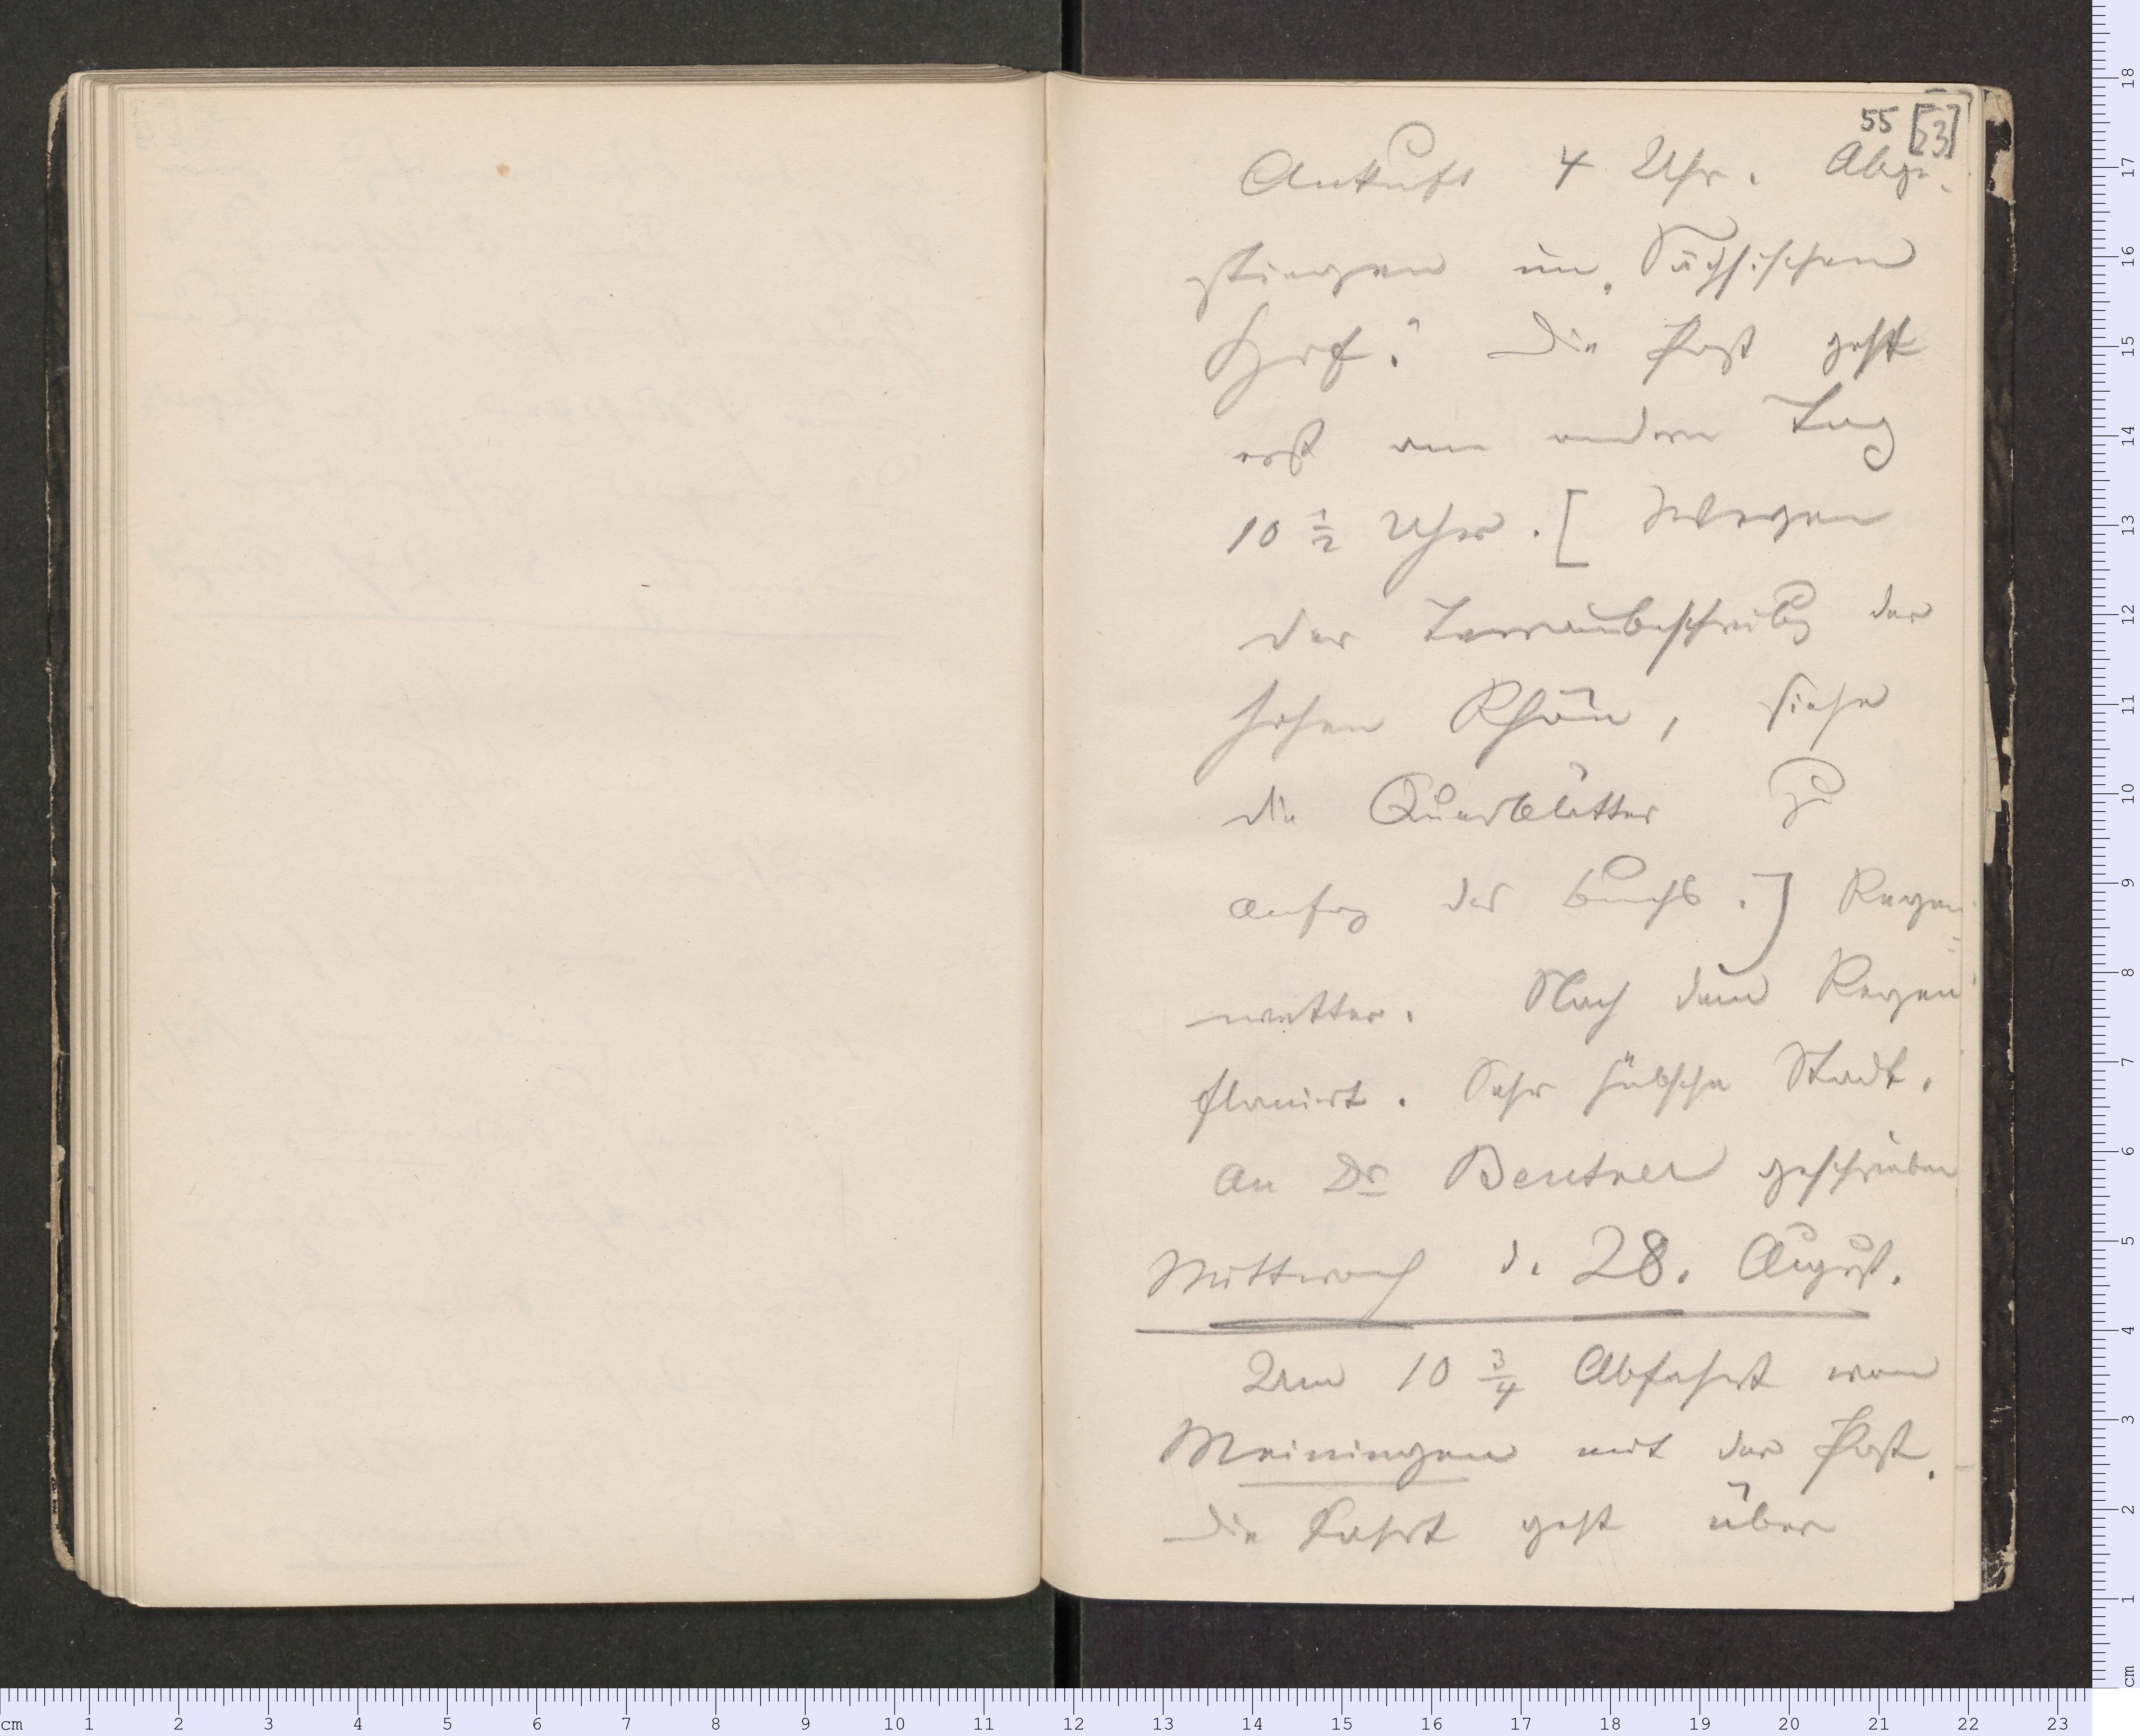 55 [53]
Ankuft 4 Uhr. Abge-
stiegen im „Sächsischen
Hof.“ Die Post geht
erst am andern Tag
10 ½ Uhr. [Wegen
der Terrainbeschreibg der
hohen Rhön, siehe
die Querblätter zu
Anfag des Buchs.] Regen-
wetter. Nach dem Regen
flanirt. Sehr hübsche Stadt.
An Dr Beutner geschrieben
Mittwoch d. 28. August.
Um 10 ¾ Abfahrt von
Meiningen mit der Post.
Die Fahrt geht über